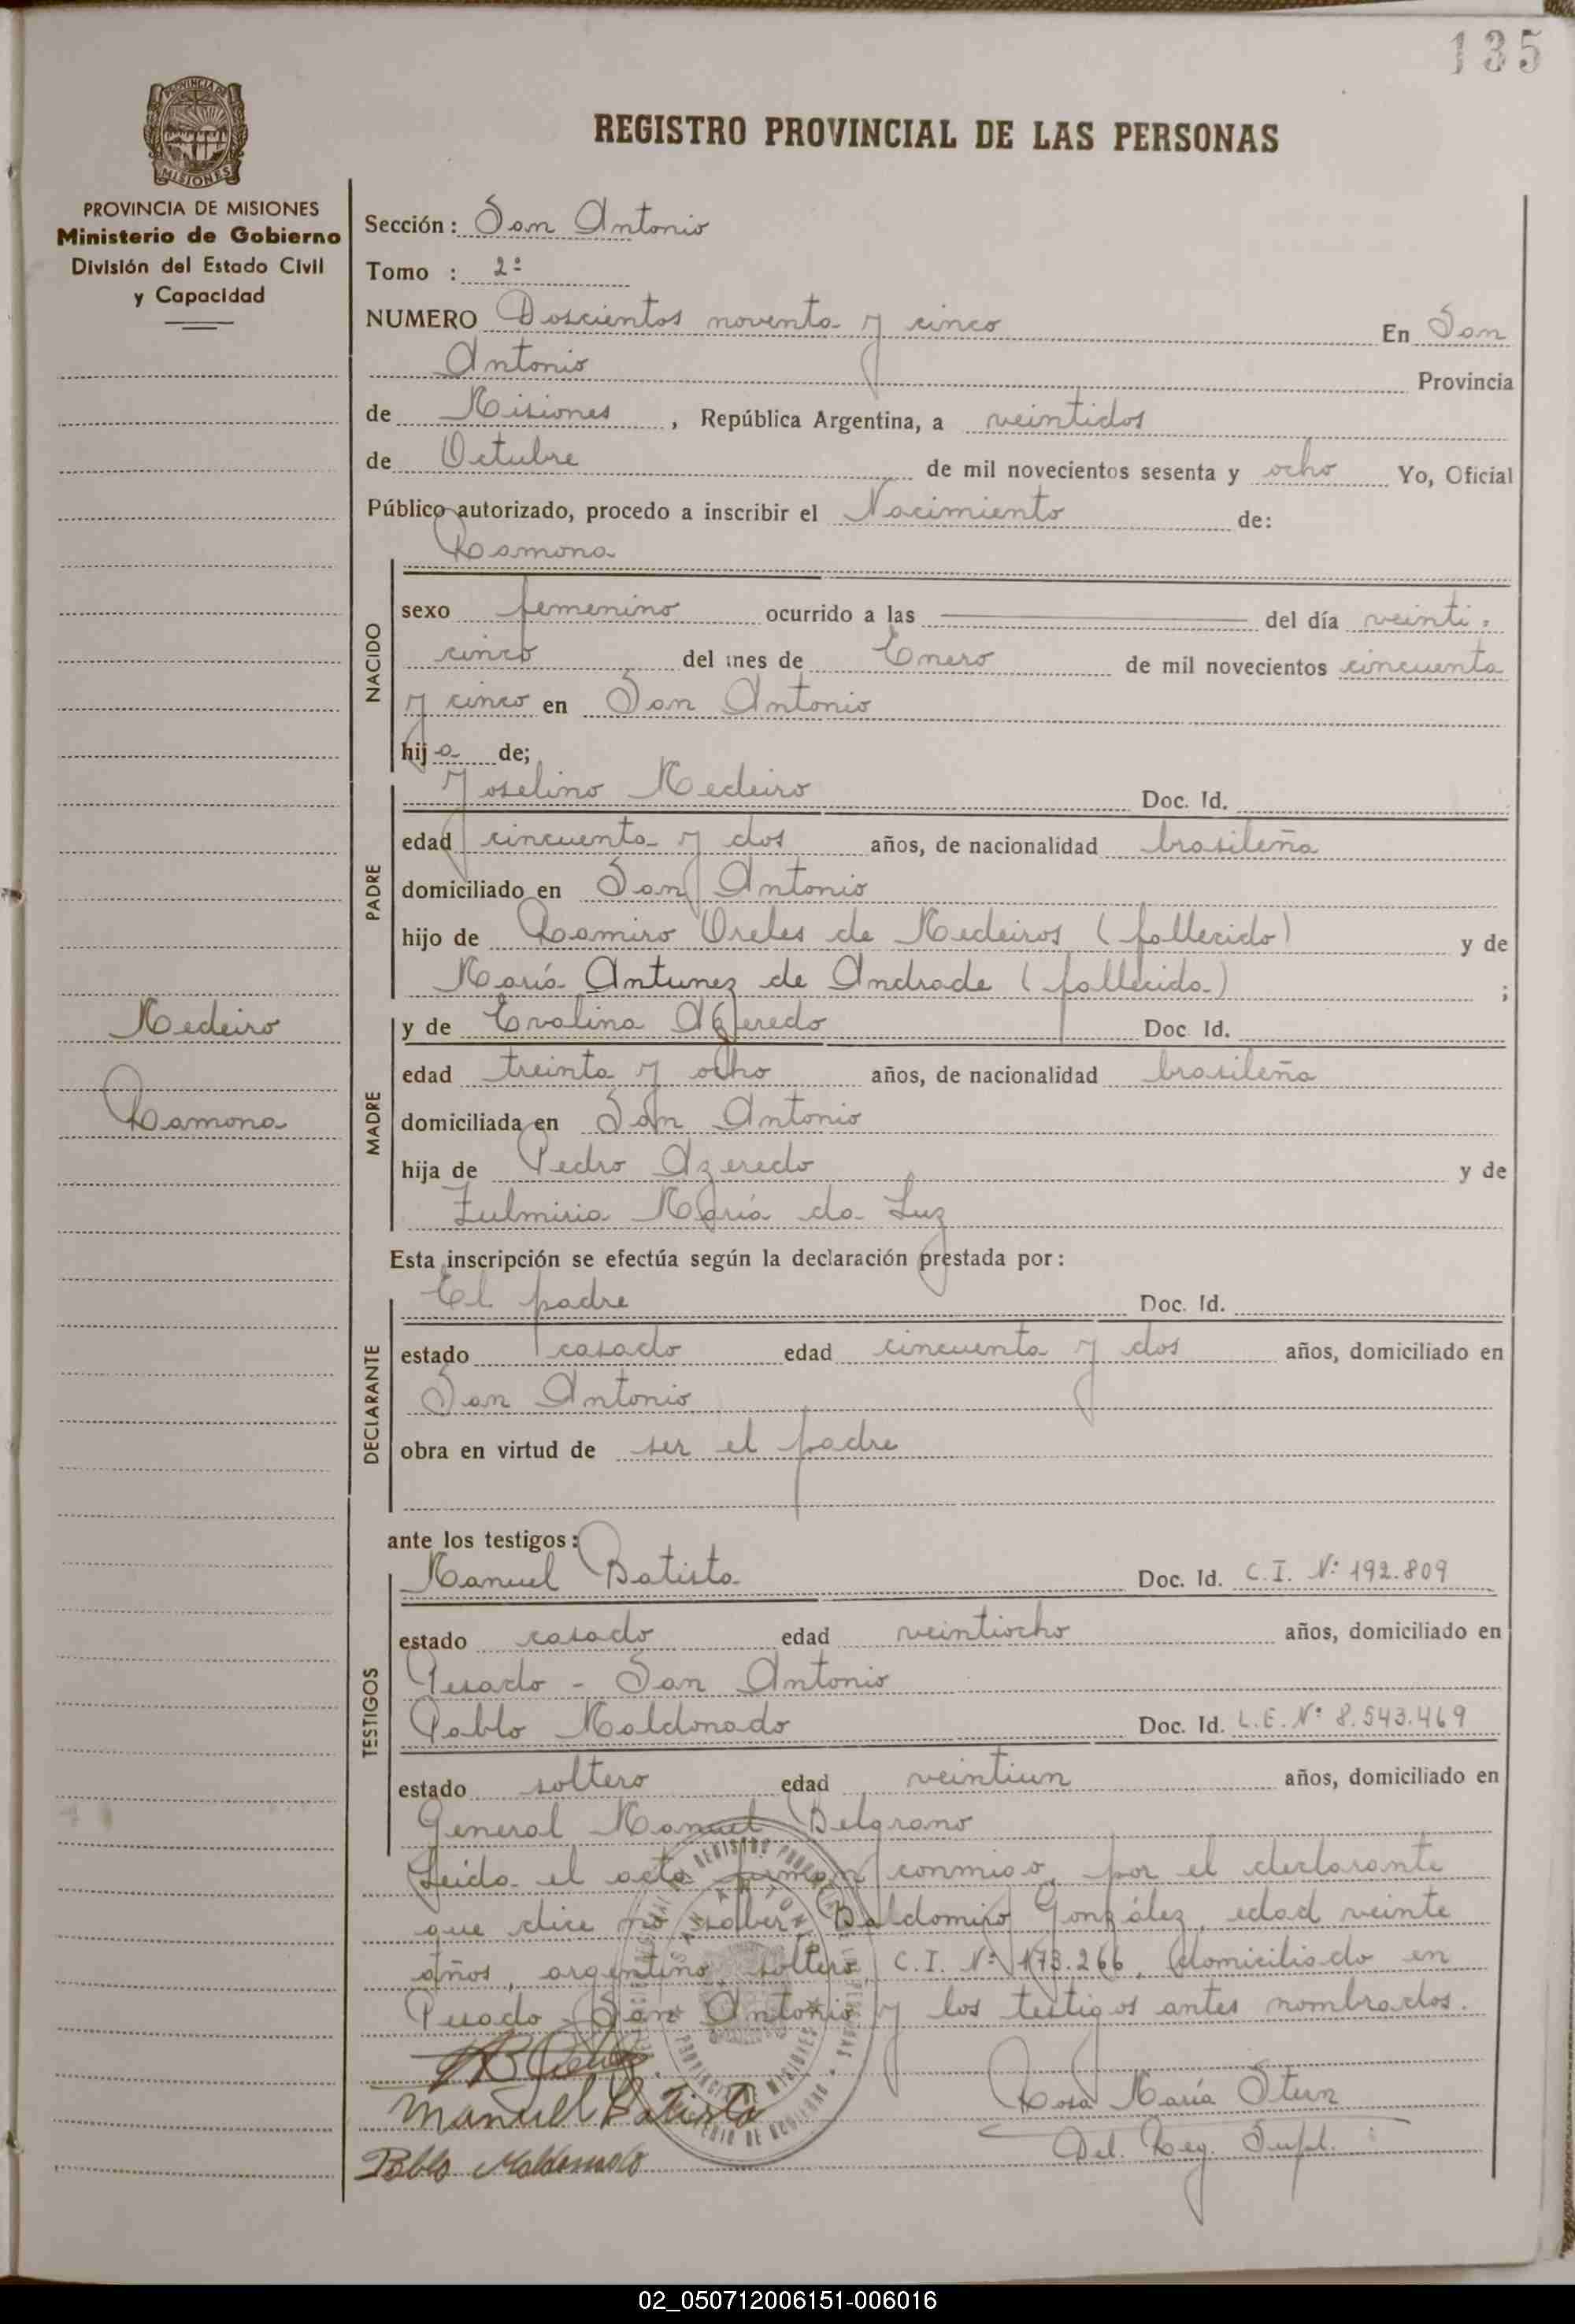 135
PROVINCIA DE
MISIONES
REGISTRO PROVINCIAL DE LAS PERSONAS
PROVINCIA DE MISIONES
Ministerio de Gobierno
División del Estado Civil
y Capacidad
Sección: San Antonio
Tomo : 2º
NUMERO Doscientos noventa y cinco En San
Antonio Provincia
de Misiones, República Argentina, a veintidos
de Octubre de mil novecientos sesenta y ocho Yo, Oficial
Público autorizado, procedo a inscribir el Nacimiento de:
Ramona
NACIDO
sexo femenino ocurrido a las del día veinti-
cinco del mes de Enero de mil novecientos cincuenta
y cinco en San Antonio
hija de;
PADRE
Joselino Medeiro Doc. Id.
edad cincuenta y dos años, de nacionalidad brasileña
domiciliado en San Antonio
hijo de Ramiro Oreles de Medeiros (fallecido) y de
María Antunez de Andrade (fallecida) ;
Medeiro
Ramona
MADRE
y de Evalina Azeredo Doc. Id.
edad treinta y ocho años, de nacionalidad brasileña
domiciliada en San Antonio
hija de Pedro Azeredo y de
Zulmiria María da Luz
Esta inscripción se efectúa según la declaración prestada por:
DECLARANTE
El padre Doc. Id.
estado casado edad cincuenta y dos años, domiciliado en
San Antonio
obra en virtud de ser el padre
ante los testigos:
TESTIGOS
Manuel Batista Doc. Id. C.I. Nº 192.809
estado casado edad veintiocho años, domiciliado en
Pesado - San Antonio
Pablo Maldonado Doc. Id. L.E. Nº 8.543.469
estado soltero edad veintiun años, domiciliado en
General Manuel Belgrano
Leída el acta firman conmigo, por el declarante
que dice no saber Baldomiro González, edad veinte
años, argentino, soltero, C.I. Nº 173.266, domiciliado en
Pesado - San Antonio y los testigos antes nombrados.
Manuel Batista
Pablo Maldonado
Rosa María Stein
Del. Reg. Supl.
SAN ANTONIO
PROVINCIA DE MISIONES
02_050712006151-006016